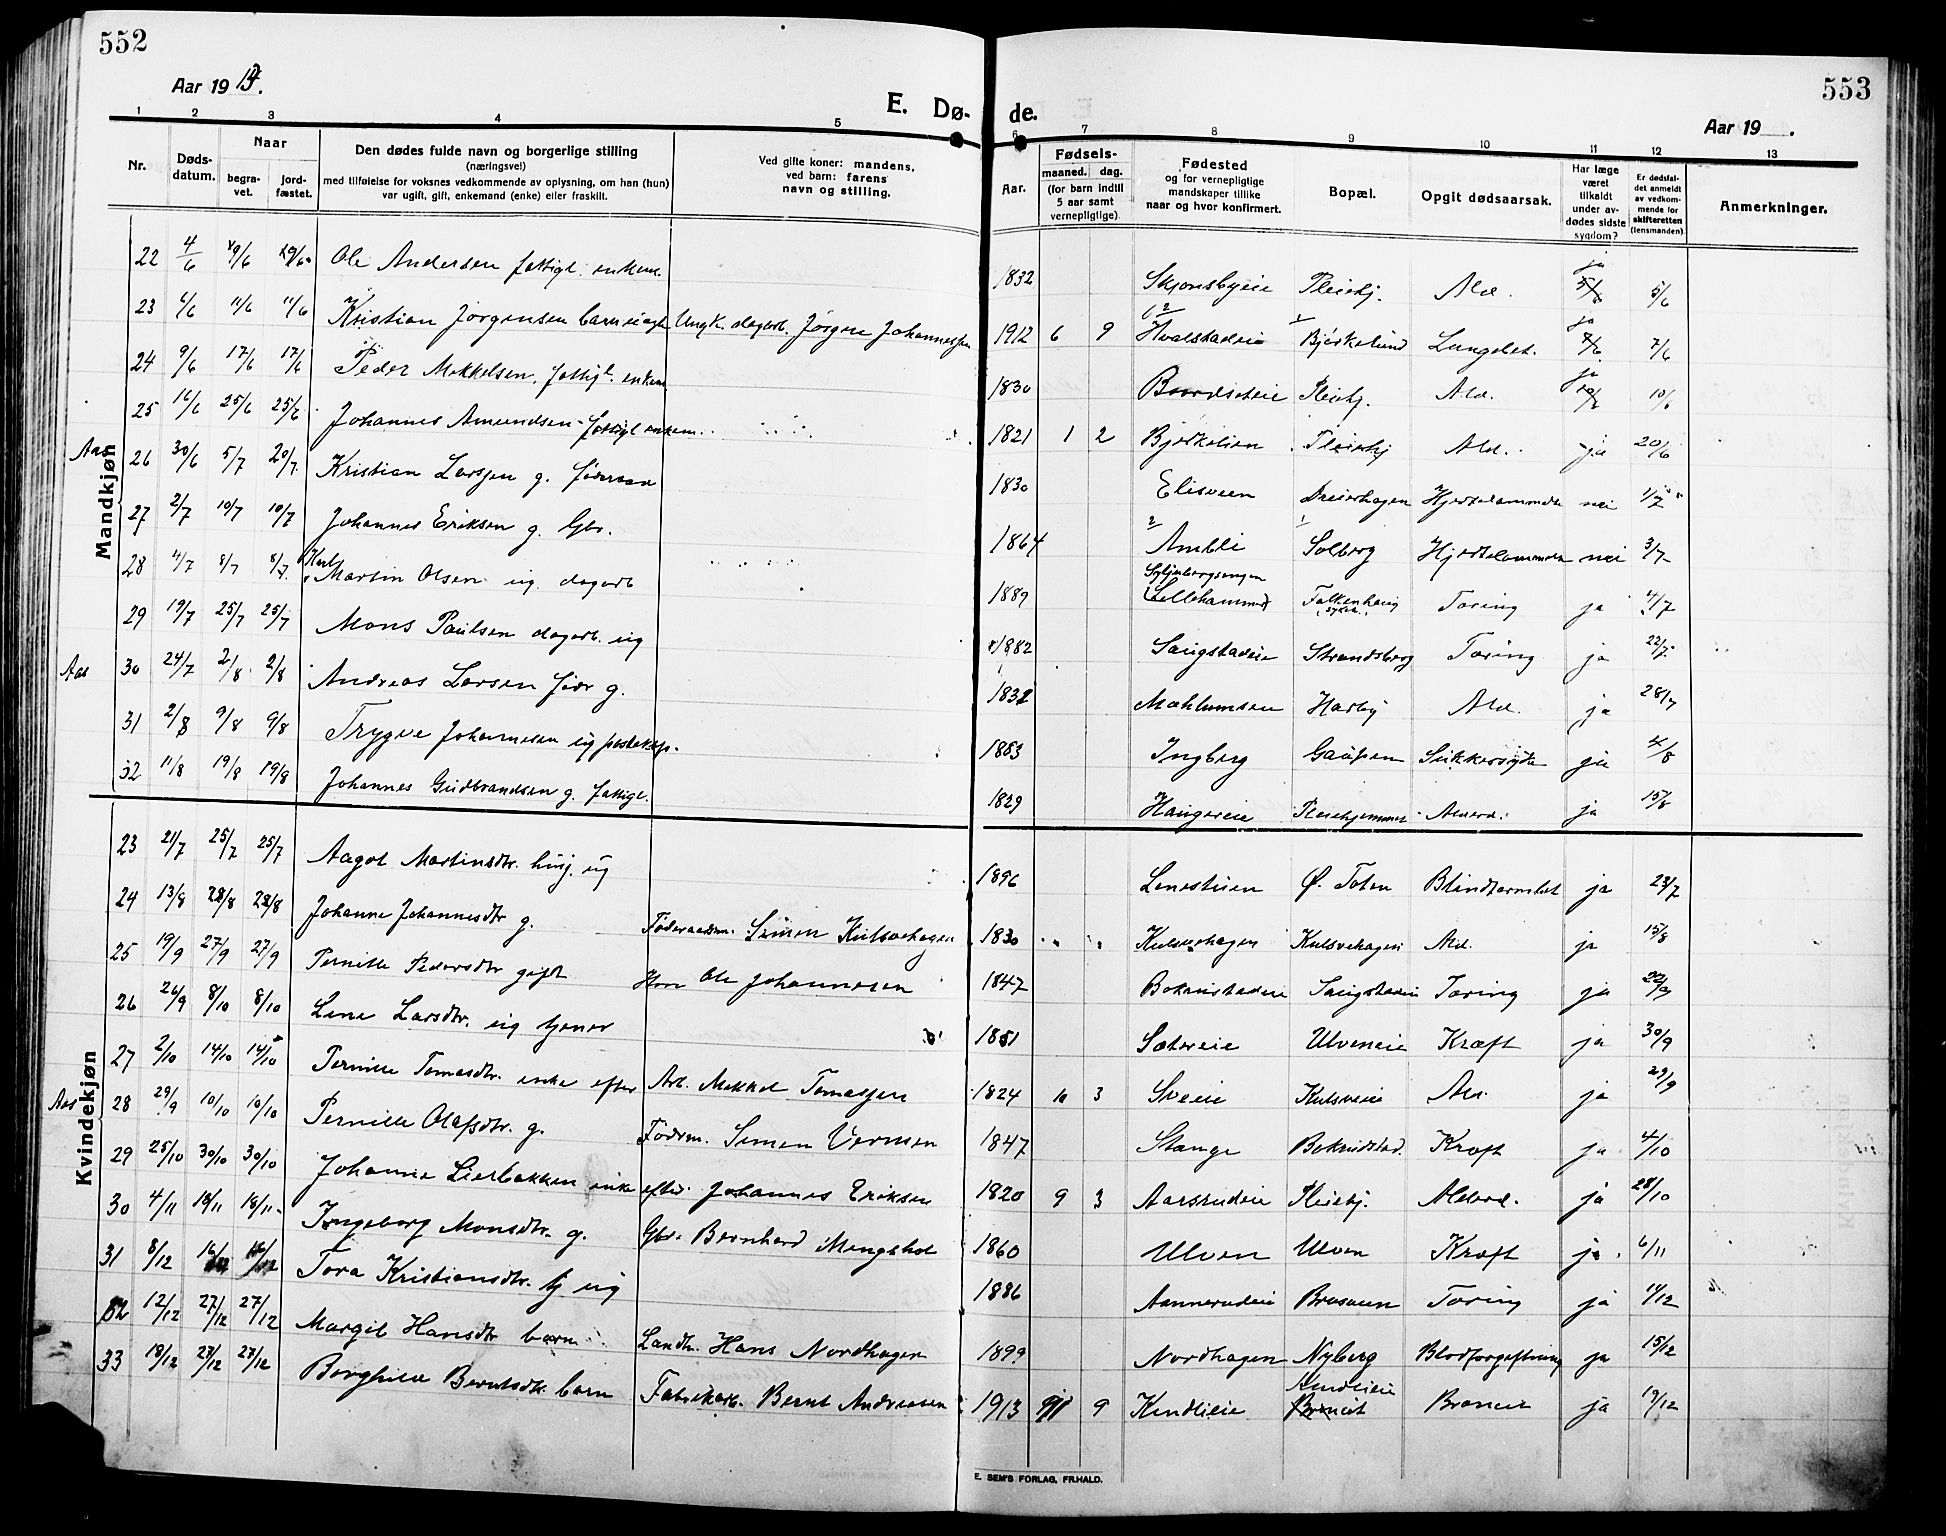 552
553
Aar 1913.
E. Dø-
de.
Aar 19 .
1 2 3 4 5 6 7 8 9 10 11 12 13
Nr.
Døds-datum.
Naar
begra-vet.
jord-fæstet.
Den dødes fulde navn og borgerlige stilling
(næringsvei)
med tilføielse for voksnes vedkommende av oplysning, om han (hun)
var ugift, gift, enkemand (enke) eller fraskilt.
Ved gifte koner: mandens,
ved barn: farens
navn og stilling.
Aar.
Fødsels-
maaned. dag.
(for barn indtil
5 aar samt
vernepligtige).
Fødested
og for vernepligtige
mandskaper tillike
naar og hvor konfirmert.
Bopæl.
Opgit dødsaarsak.
Har læge
været
tilkaldt
under av-
dødes sidste
sygdom?
Er dødsfal-
det anmeldt
av vedkom-
mende for
skifteretten
(lensmanden).
Anmerkninger.
Mandkjøn
22 4/6 9/6 Ole Andersen fattigl. enkem. 1832 Pleiehj. Ald. ja 5/6
23 6/6 11/6 11/6 Kristian Jørgensen barn Ungk. dagarb. Jørgen Johannessen 1912 6 9 Hvalstadeie Bjørkelund Lungebet. ja 7/6
24 9/6 17/6 17/6 Peder Mekkelsen, fattigl. enkem 1830 Pleiehj. Ald. ja 10/6
25 16/6 25/6 25/6 Johannes Amundsen fattigl enkem. 1821 1 2 Bjørkelien Pleiehj Ald. ja 20/6
Aas 26 30/6 5/7 20/7 Kristian Larsen g. føderaad 1830 Elisveen Dreierhagen Hjertelammelse nei
27 2/7 10/7 10/7 Johannes Eriksen g. Gbr. 1864 Ambli Solberg Hjertelammelse nei 3/7
28 4/7 8/7 8/7 Karl Martin Olsen ug. dagarb 1889 Lillehammer Tæring ja 4/7
29 19/7 25/7 25/7 Mons Paulsen dagarb. ug 1882 Saugstadeie Strandsberg Tæring ja 22/7
Aas 30 24/7 2/8 2/8 Andreas Larsen føder g. Mæhlumseie Ald. ja 28/7
31 2/8 9/8 9/8 Trygve Johannesen ug 1883 Ingberg Gaupen Sukkersyke ja 4/8
32 11/8 19/8 19/8 Johannes Gudbrandsen g. fattigl. 1829 Haugereie Pleiehjemmet Alderd. ja 15/8
Kvindekjøn
23 21/7 25/7 25/7 Aagot Martinsdtr. husj. ug 1896 Lenestuen Ø. Toten Blindtarmbet ja 23/7
24 13/8 28/8 28/8 Johanne Johannesdtr g. Føderaadsm. Simen Kulsvehagen 1830 Kulsvehagen Kulsvehagen Ald. ja 15/8
25 19/9 27/9 27/9 Pernille Pedersdtr gift Ole Johannesen 1847 Bokrudstadeie Saugstadeie Tæring ja 22/9
26 26/9 8/10 8/10 Lene Larsdtr. ug tjener 1851 Sætereie Ulveneie Kræft ja 30/9
27 2/10 14/10 14/10 Pernille Tomasdtr. enke efter Arb. Mekkel Tomassen 1824 10 3 Sveeie Kulsveeie Ald. ja 29/9
Aas 28 29/9 10/10 10/10 Pernille Olafsdtr. g. Føderm. Simen Vermen 1847 Stange Bokrudstad. Kræft ja 4/10
29 25/10 30/10 30/10 Johanne Lierbakken enke efter Johannes Eriksen 1820 9 3 Aarsrudeie Pleiehj. Alderd. ja 28/10
30 4/11 18/11 18/11 Ingeborg Monsdtr. g. Gbr. Bernhard Mengshol 1860 Ulven Ulven Kræft ja 6/11
31 8/12 16/12 16/12 Tora Kristiansdtr. tj ug 1886 Aannerudeie Brøsveen Tæring ja 11/12
32 12/12 27/12 27/12 Margit Hansdtr barn Landh. Hans Nordhagen 1899 Nordhagen Nyberg Blodforgiftning ja 15/12
33 18/12 27/12 27/12 Borghild Berntsdtr. barn Fabrikarb. Bernt Andreasen 1913 9 Kindlieie Kindlieie Broncit ja 19/12
E. SEM'S FORLAG, FR.HALD.